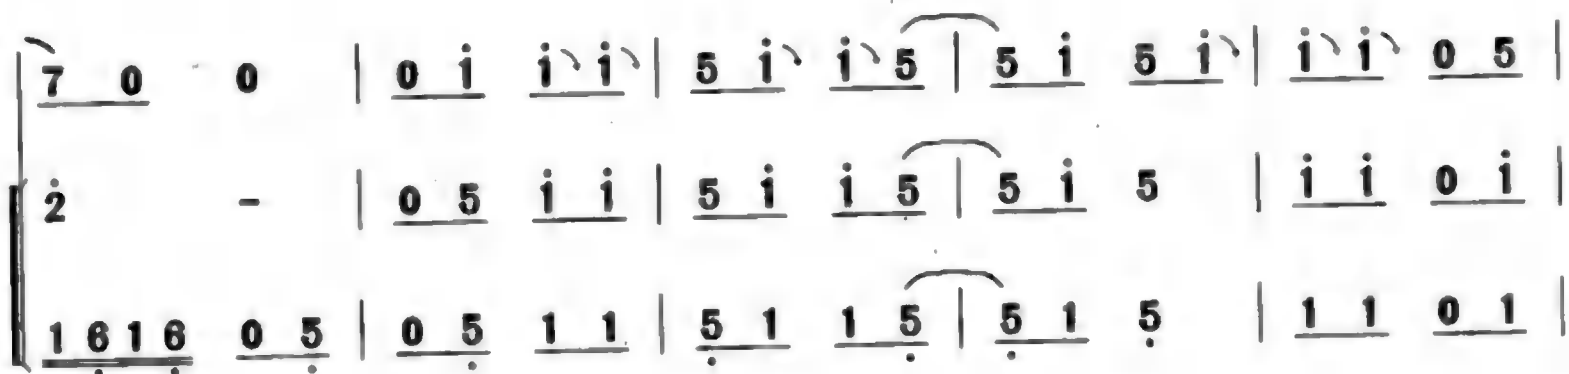 7 0 0 | 0 i̇ i̇ i̇ | 5 i̇ i̇ 5 | 5 i̇ 5 i̇ | i̇ i̇ 0 5 |
2̇ - | 0 5 i̇ i̇ | 5 i̇ i̇ 5 | 5 i̇ 5 | i̇ i̇ 0 i̇ |
1 6̣ 1 6̣ 0 5̣ | 0 5̣ 1 1 | 5̣ 1 1 5̣ | 5̣ 1 5̣ | 1 1 0 1 |